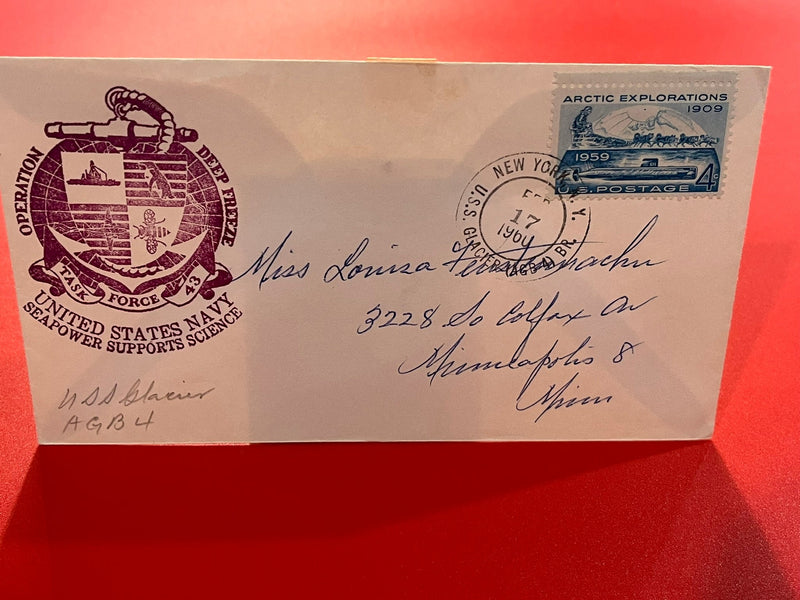 OPERATION DEEP FREEZE
TASK FORCE 43
UNITED STATES NAVY
SEAPOWER SUPPORTS SCIENCE
USS Glacier
AGB 4
ARCTIC EXPLORATIONS
1909
1959
4c
U.S. POSTAGE
NEW YORK, N.Y.
FEB
17
1960
U.S.S. GLACIER (AGB-4) BR.
Miss Louisa
3228 So Colfax Av
Minneapolis 8
Minn